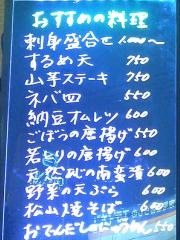 おすすめの料理
刺身盛合せ 1,000〜
するめ天 750
山芋ステーキ 750
ネバ四 550
納豆オムレツ 600
ごぼうの唐揚げ 550
若どりの唐揚げ 600
天然鯵の南蛮漬 600
野菜の天ぷら 600
松山焼そば 600
おでんだしのにゅうめん 550